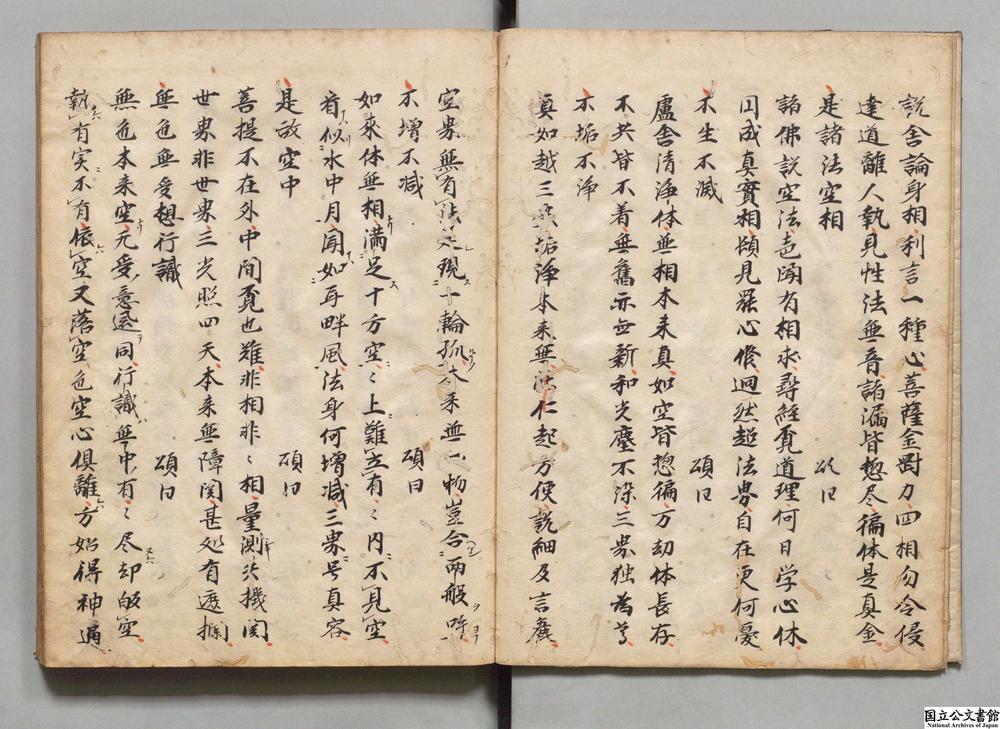 説舎論身相利言一種心菩薩金剛力四相勿令侵
達道離人執見性法無音諸漏皆揔尽徧体是真金
是諸法空相　頌曰
諸佛説空法声聞有相求尋経覓道理何日学心休
囙成真實相頓見罷心修逈然超法界自在更何憂
不生不滅　頌曰
盧舎清浄体無相本来真如空皆揔徧万劫体長存
不共皆不着無舊亦無新和光塵不染三界独為尊
不垢不浄
真如越三界垢浄本来無能仁起方便説細及言麁
空界無有法是現一輪孤本来無一物豈合両般呼
不增不减　頌曰
如来体無相満足十方空〻上難立有〻内不見空
看似水中月聞如耳畔風法身何增减三界号真容
是故空中　頌曰
菩提不在外中間覓也難非相非〻相量測失機関
世界非世界三光照四天本来無障閡甚処有遮攔
無色無受想行識　頌曰
無色本来空無受意還同行識無中有〻尽却皈空
執有実不有依空又落空色空心俱離方始得神通
国立公文書館
National Archives of Japan